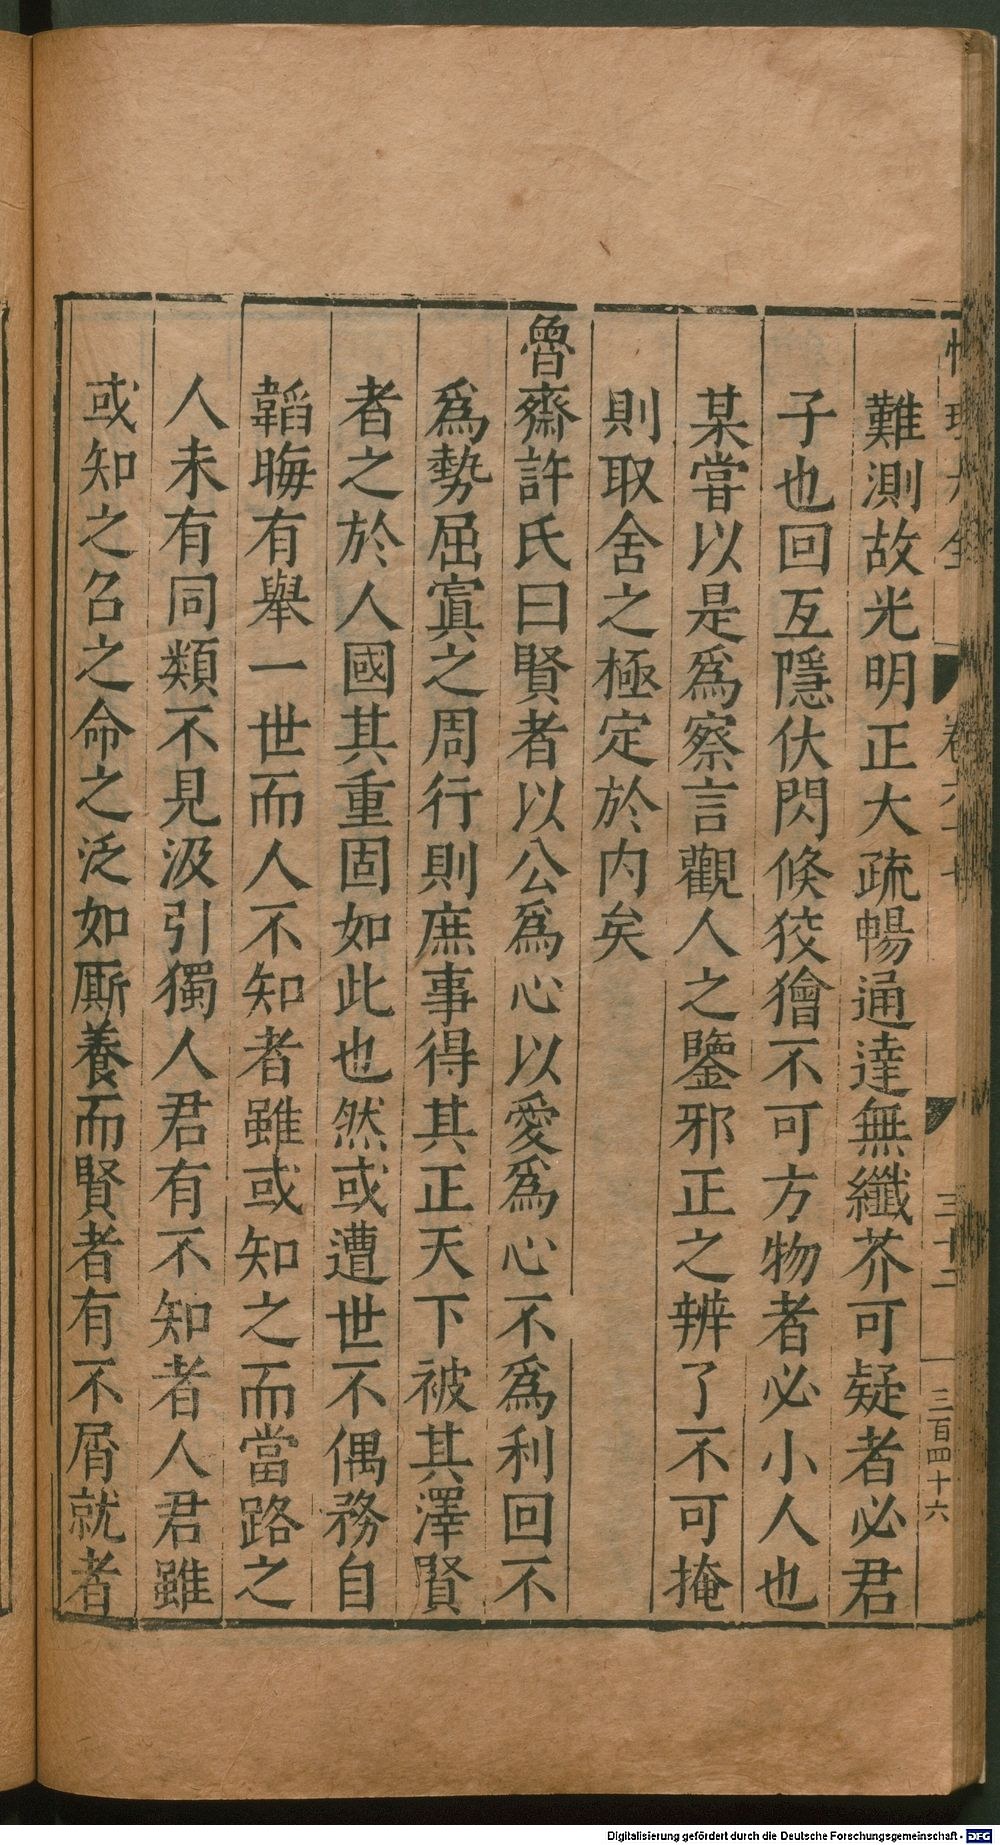 難測故光明正大疏暢通達無纖芥可疑者必君
子也回互隱伏閃倐狡獪不可方物者必小人也
某嘗以是爲察言觀人之鑒邪正之辨了不可掩
則取舍之極定於内矣
魯齋許氏曰賢者以公爲心以愛爲心不爲利回不
爲勢屈寘之周行則庶事得其正天下被其澤賢
者之於人國其重固如此也然或遭世不偶務自
韜晦有舉一世而人不知者雖或知之而當路之
人未有同類不見汲引獨人君有不知者人君雖
或知之召之命之泛如厮養而賢者有不屑就者
卷六十七
三十二
三百四十六
Digitalisierung gefördert durch die Deutsche Forschungsgemeinschaft - DFG